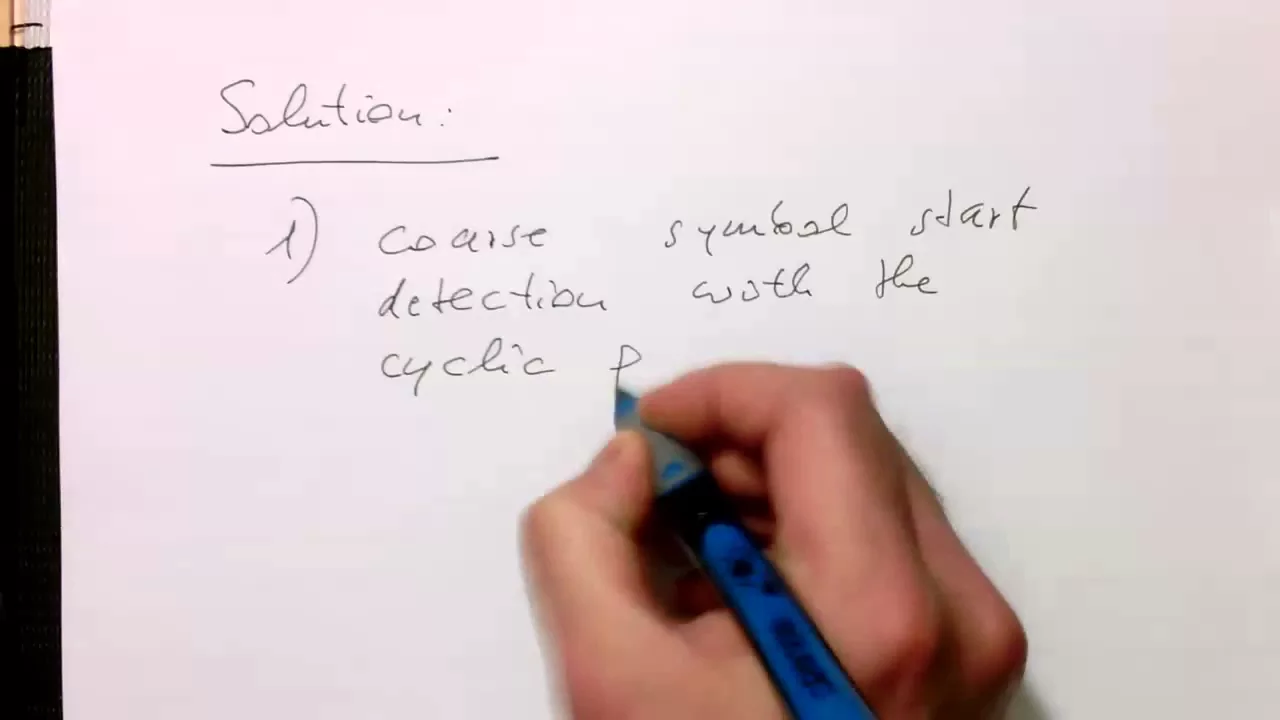 Solution:
1) coarse symbol start
detection with the
cyclic P